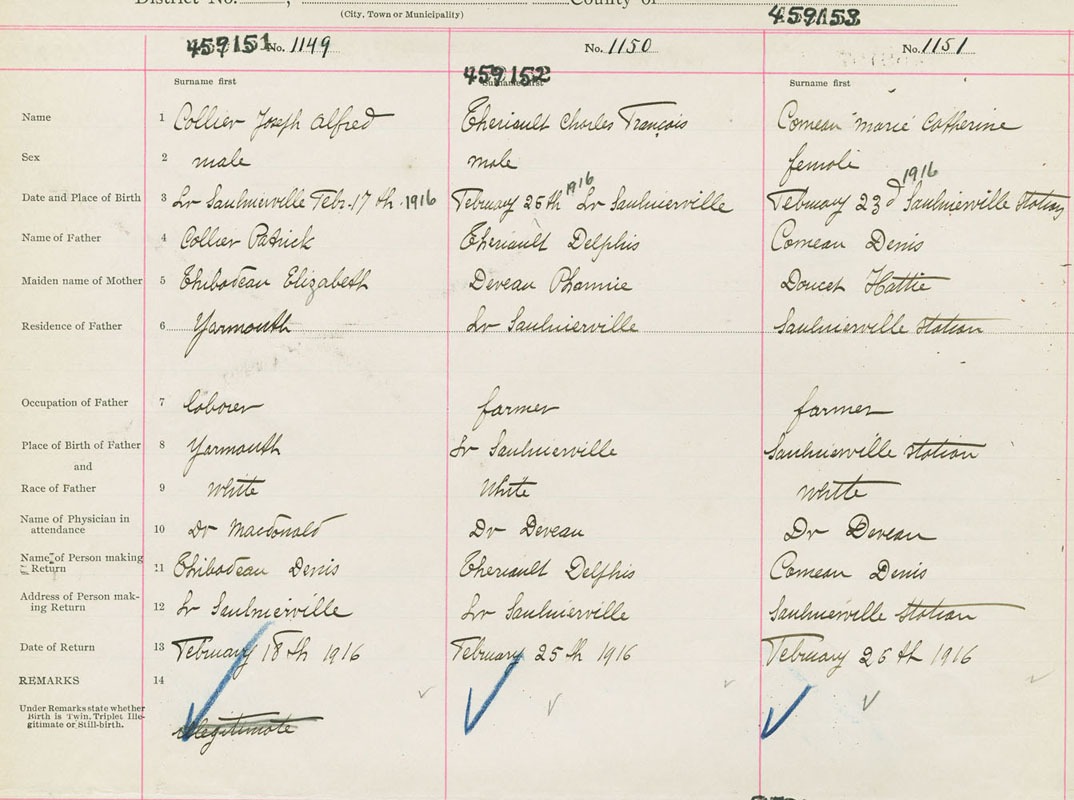 District No. , County of
(City, Town or Municipality)
459151 No. 1149 No. 1150 459153 No. 1151
Surname first 459152 Surname first Surname first
Name 1 Collier Joseph Alfred Theriault Charles François Comeau "Marie" Catherine
Sex 2 male male female
Date and Place of Birth 3 Lr Saulnierville Feb. 17 th. 1916 February 25th 1916 Lr Saulnierville February 23d 1916 Saulnierville Station
Name of Father 4 Collier Patrick Theriault Delphis Comeau Denis
Maiden name of Mother 5 Thibodeau Elizabeth Deveau Phannie Doucet Hattie
Residence of Father 6 Yarmouth Lr Saulnierville Saulnierville Station
Occupation of Father 7 laborer farmer farmer
Place of Birth of Father 8 Yarmouth Lr Saulnierville Saulnierville station
and
Race of Father 9 White White White
Name of Physician in
attendance 10 Dr Macdonald Dr Deveau Dr Deveau
Name of Person making
Return 11 Thibodeau Denis Theriault Delphis Comeau Denis
Address of Person mak-
ing Return 12 Lr Saulnierville Lr Saulnierville Saulnierville Station
Date of Return 13 February 18th 1916 February 25th 1916 February 26th 1916
REMARKS 14
Under Remarks state whether
Birth is Twin, Triplet Ille-
gitimate or Still-birth.
illegitimate